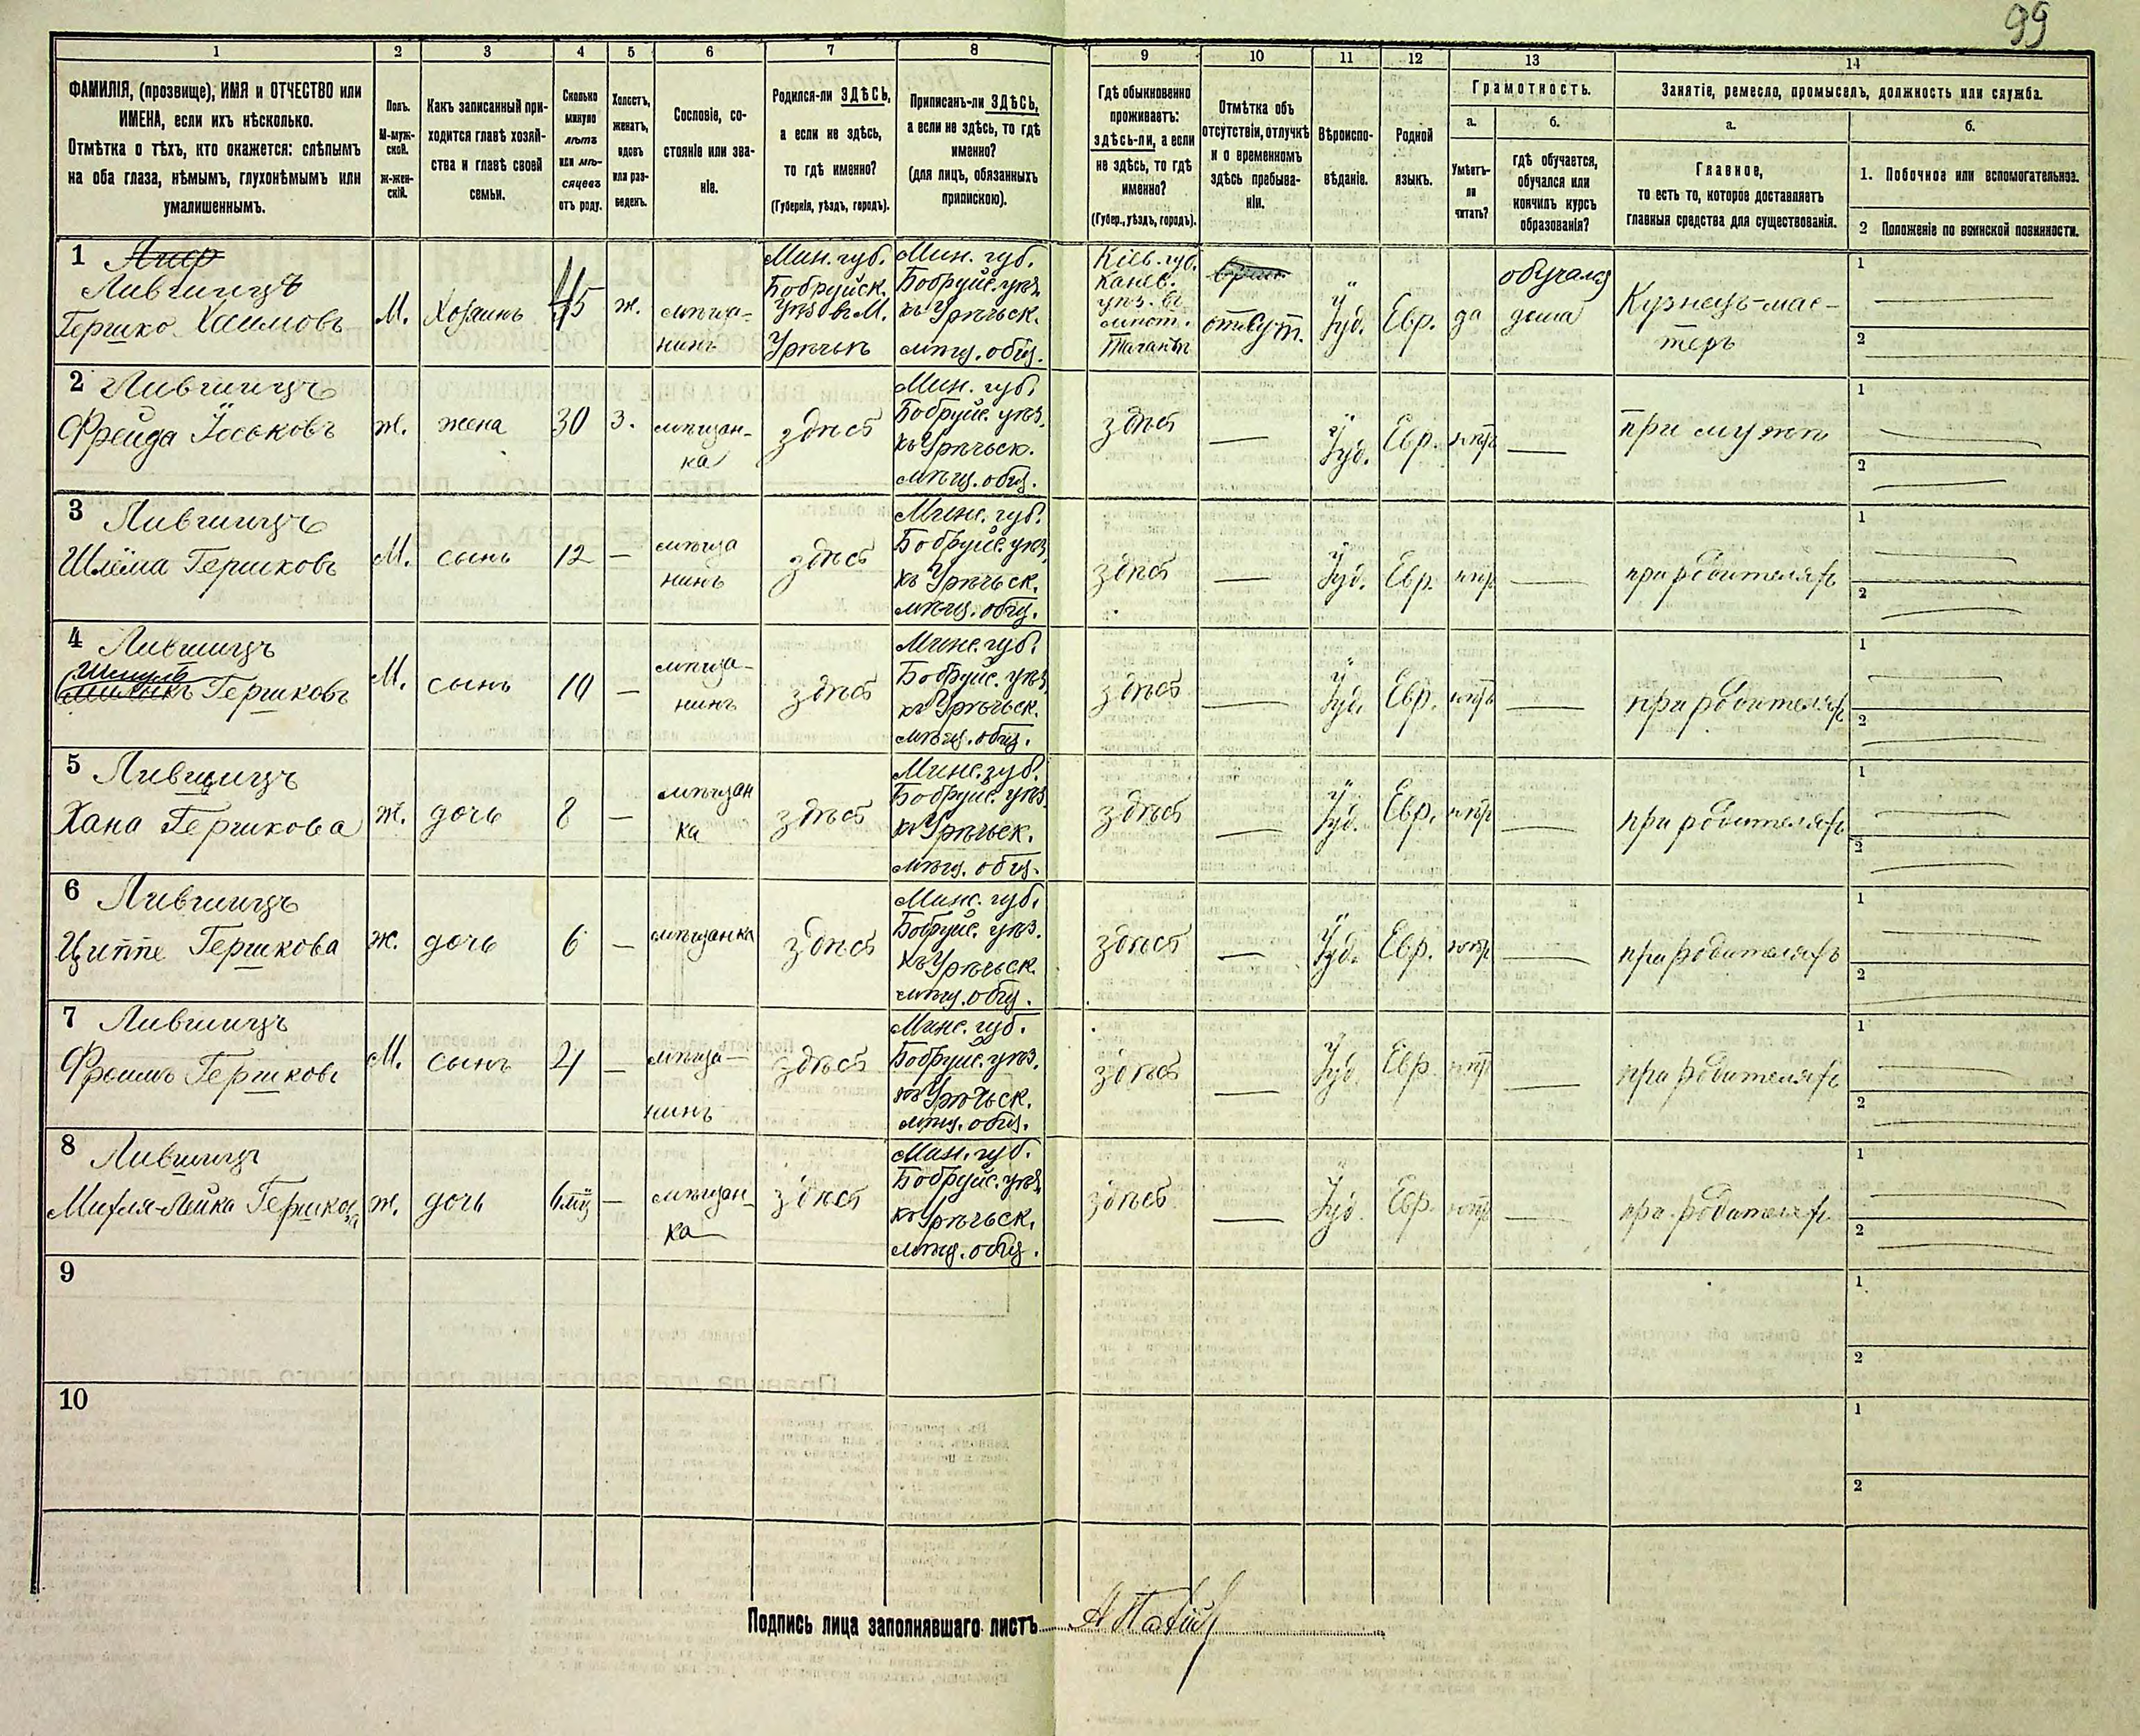 99
1 2 3 4 5 6 7 8 9 10 11 12 13 14
ФАМИЛІЯ, (прозвище), ИМЯ и ОТЧЕСТВО или
ИМЕНА, если ихъ нѣсколько.
Отмѣтка о тѣхъ, кто окажется: слѣпымъ
на оба глаза, нѣмымъ, глухонѣмымъ или
умалишеннымъ.
Полъ.
М-муж-
ской.
Ж-жен-
скій.
Какъ записанный при-
ходится главѣ хозяй-
ства и главѣ своей
семьи.
Сколько
минуло
лѣтъ
или мѣ-
сяцевъ
отъ роду.
Холостъ,
женатъ,
вдовъ
или раз-
веденъ.
Сословіе, со-
стояніе или зва-
ніе.
Родился-ли ЗДѢСЬ,
а если не здѣсь,
то гдѣ именно?
(Губернія, уѣздъ, городъ).
Приписанъ-ли ЗДѢСЬ,
а если не здѣсь, то гдѣ
именно?
(для лицъ, обязанныхъ
припискою).
Гдѣ обыкновенно
проживаетъ:
здѣсь-ли, а если
не здѣсь, то гдѣ
именно?
(Губер., уѣздъ, городъ).
Отмѣтка объ
отсутствіи, отлучкѣ
и о временномъ
здѣсь пребыва-
ніи.
Вѣроиспо-
вѣданіе.
Родной
языкъ.
Грамотность.
а.
Умѣетъ-
ли
читать?
б.
гдѣ обучается,
обучался или
кончилъ курсъ
образованія?
Занятіе, ремесло, промыселъ, должность или служба.
а.
Главное,
то есть то, которое доставляетъ
главныя средства для существованія.
б.
1. Побочное или вспомогательное.
2 Положеніе по воинской повинности.
1
Лившицъ
Гершко Хаимовъ
М. Хозяинъ 45 ж.
мѣща-
нинъ
Мин. губ.
Бобруйск.
уѣз. въ М.
Урѣчьѣ
Мин. губ.
Бобруйс. уѣз.
къ Урѣчьск.
мѣщ. общ.
Кіев. губ.
Канев.
уѣз. въ
мѣст.
отсут. Іуд. Евр. да
обучался
дома
Кузнецъ-мас-
теръ
1
2
2 Лившицъ
Фрейда Іоськовъ
ж. жена 30 з.
мѣщан-
ка
здѣсь
Мин. губ.
Бобруйс. уѣз.
къ Урѣчьск.
мѣщ. общ.
здѣсь — Іуд. Евр. нѣтъ —
при мужѣ
1
2
3 Лившицъ
Шлёма Гершковъ
М. сынъ 12 —
мѣща
нинъ
здѣсь
Минс. губ.
Бобруйс. уѣз.
къ Урѣчьск.
мѣщ. общ.
здѣсь — Іуд. Евр. нѣтъ —
при родителяхъ
1
2
4 Лившицъ
Гершковъ
М. сынъ 10 —
мѣща-
нинъ
здѣсь
Минс. губ.
Бобруйс. уѣз.
къ Урѣчьск.
мѣщ. общ.
здѣсь — Іуд. Евр. нѣтъ —
при родителяхъ
1
2
5 Лившицъ
Хана Гершкова
ж. дочь 8 —
мѣщан
ка
здѣсь
Минс. губ.
Бобруйс. уѣз.
къ Урѣчьск.
мѣщ. общ.
здѣсь — Іуд. Евр. нѣтъ —
при родителяхъ
1
2
6 Лившицъ
Циппе Гершкова
ж. дочь 6 — мѣщанка здѣсь
Минс. губ.
Бобруйс. уѣз.
къ Урѣчьск.
мѣщ. общ.
здѣсь — Іуд. Евр. нѣтъ —
при родителяхъ
1
2
7 Лившицъ
Фроимъ Гершковъ
М. сынъ 4 —
мѣща-
нинъ
здѣсь
Минс. губ.
Бобруйс. уѣз.
къ Урѣчьск.
мѣщ. общ.
здѣсь — Іуд. Евр. нѣтъ —
при родителяхъ
1
2
8 Лившицъ
Михля-Лейка Гершкова
ж. дочь 6 мц —
мѣщан-
ка
здѣсь
Мин. губ.
Бобруйс. уѣз.
къ Урѣчьск.
мѣщ. общ.
здѣсь — Іуд. Евр. нѣтъ —
при родителяхъ
1
2
9
1
2
10
1
2
Подпись лица заполнявшаго листъ